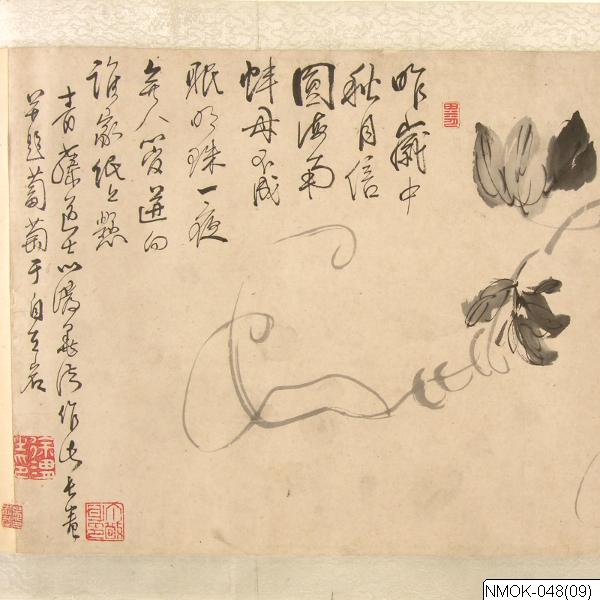 昨歲中
秋月倍
圓海南
蚌母不成
眠明珠一夜
無人管迸向
誰家紙上懸
青藤道士以潑墨法作此長卷
并題葡萄于自在岩
NMOK-048(09)